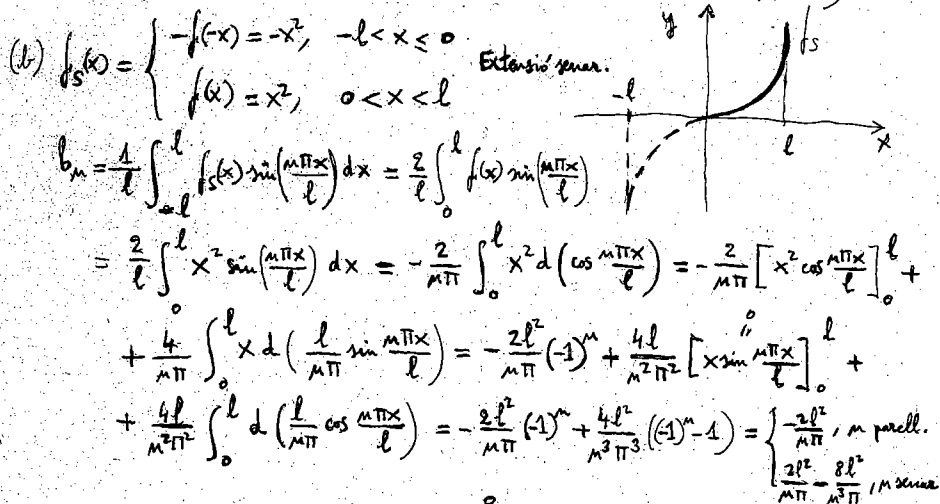 (b) f_S(x) = { -f(-x) = -x², -l < x ≤ 0
f(x) = x², 0 < x < l
Extensió senar.
y
f_S
-l
l
x
b_n = 1/l ∫_{-l}^{l} f_S(x) sin(nπx/l) dx = 2/l ∫_0^l f(x) sin(nπx/l)
= 2/l ∫_0^l x² sin(nπx/l) dx = -2/(nπ) ∫_0^l x² d(cos nπx/l) = -2/(nπ) [x² cos nπx/l]_0^l +
+ 4/(nπ) ∫_0^l x d(l/(nπ) sin nπx/l) = -2l²/(nπ) (-1)^n + 4l/(n²π²) [x sin nπx/l]_0^l +
0
"
+ 4l/(n²π²) ∫_0^l d(l/(nπ) cos nπx/l) = -2l²/(nπ) (-1)^n + 4l²/(n³π³) ((-1)^n - 1) = { -2l²/(nπ), n parell.
2l²/(nπ) - 8l²/(n³π³), n senar